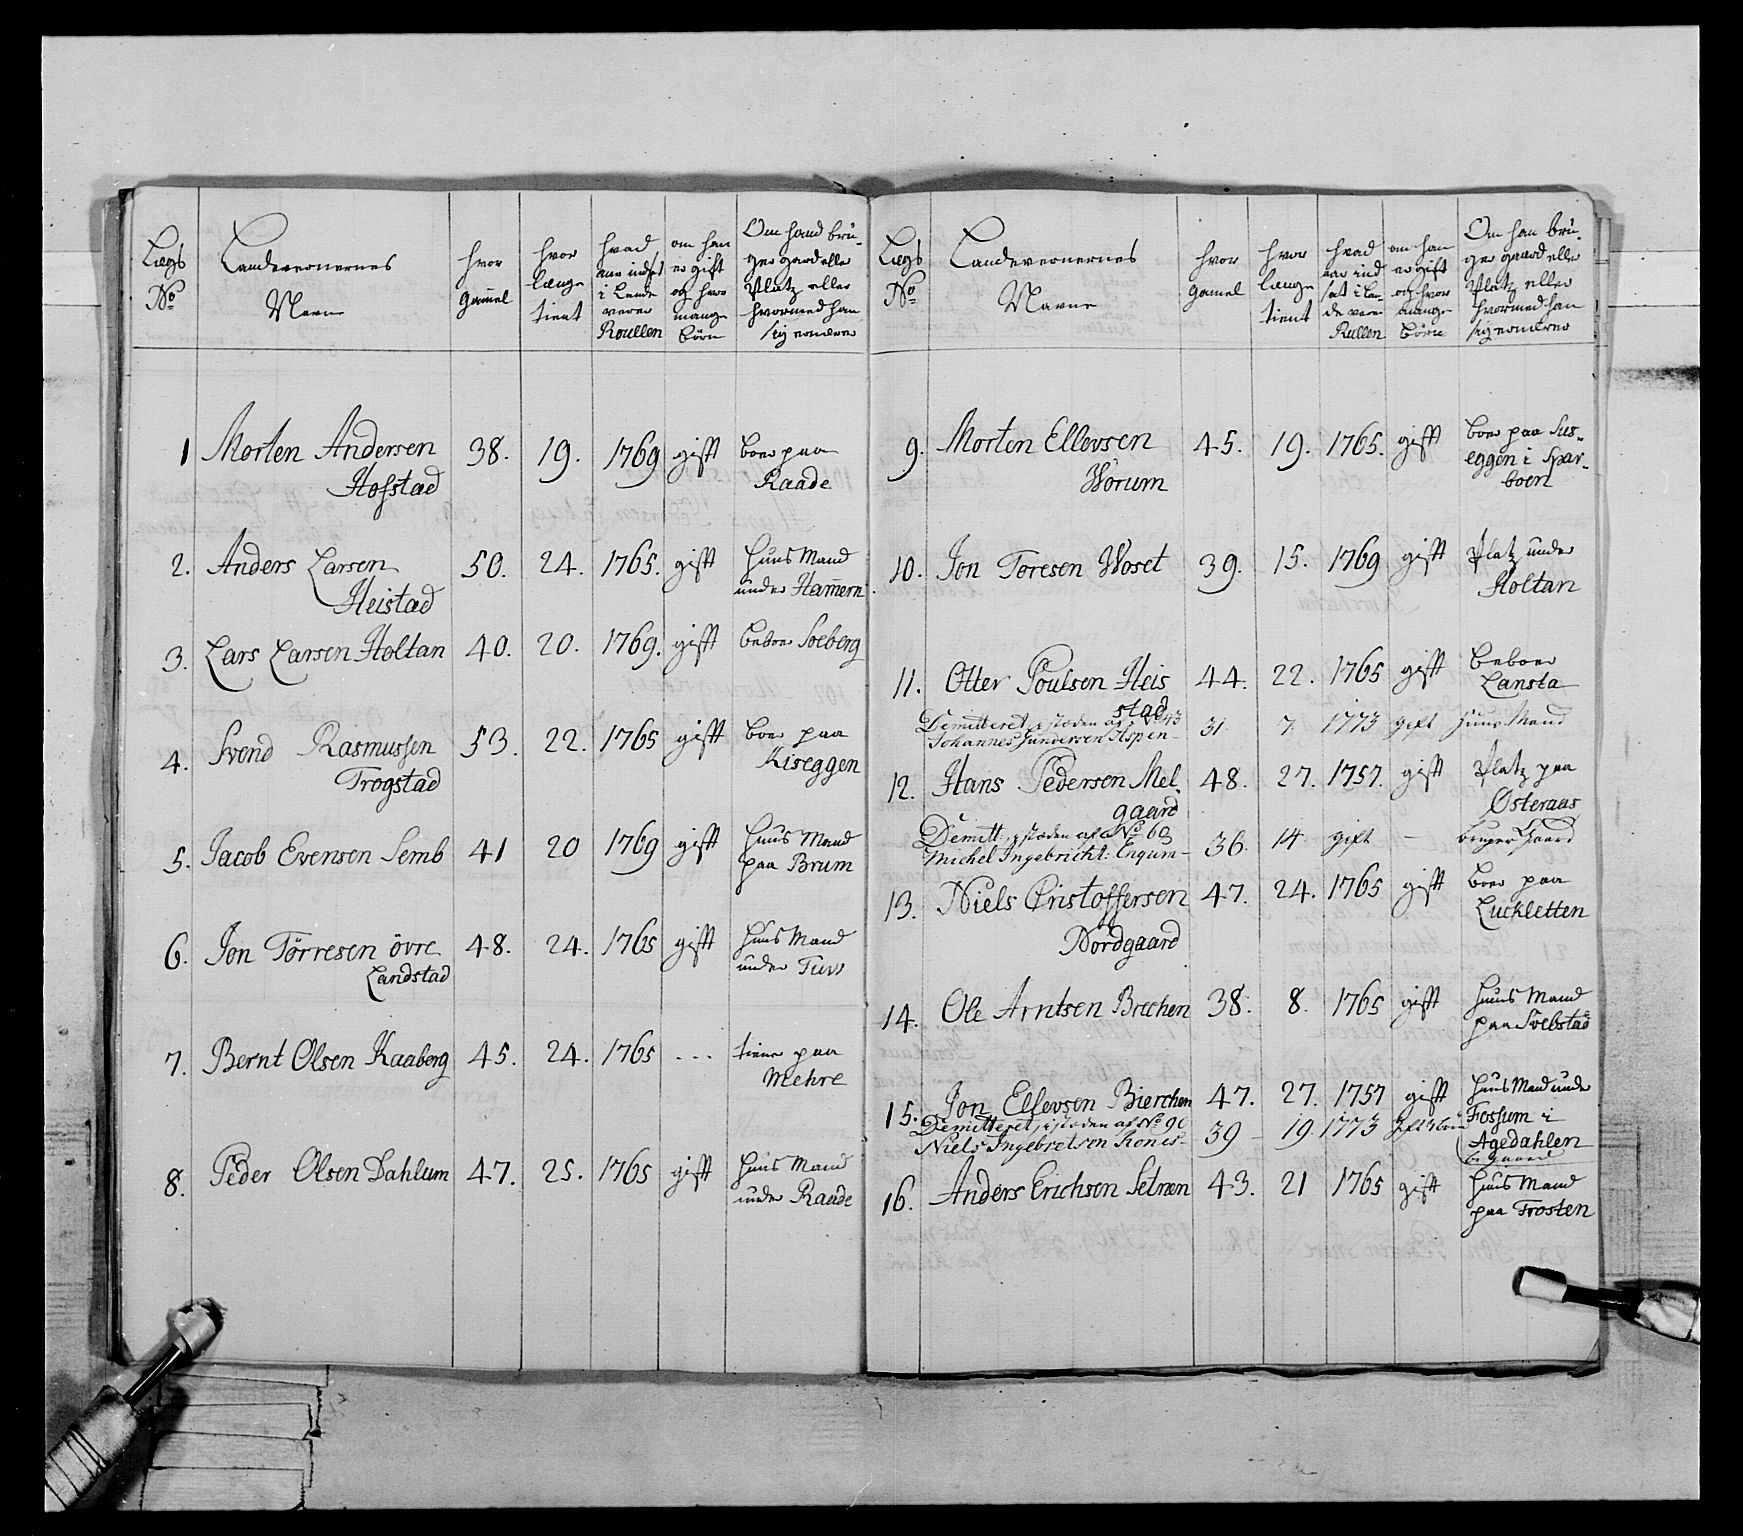 Lægs
No
Landevernernes
Navne
hvor
Gamel
hvor
længe
tient
hvad
aar indsat
i Lande
verer
Roullen
om han
er gift
og hvor
mange
børn
Om hand bru-
ger gaard eller
Platz eller
hvormed han
sig ernærer
1 Morten Andersen 38. 19. 1769 gifft boer paa
Hofstad Raade
2. Anders Larsen 50. 24. 1765. gifft Huus Mand
Heistad under Hamern
3. Lars Larsen Holtan 40. 20. 1769. gifft beboer Soeberg
4. Svend Rasmussen 53. 22. 1765 gifft boer paa
Trogstad Kiseggen
5. Jacob Evensen Semb 41 20 1769 gifft Huus Mand
paa Brum
6. Jon Tørresen övre 48. 24. 1765 gifft Huus Mand
Landstad under Tuv
7. Bernt Olsen Kaaberg 45. 24. 1765 ... tiener paa
Mehre
8. Peder Olsen Dahlum 47. 25. 1765 gifft Huus Mand
under Raade
Lægs
No
Landevernernes
Navne
hvor
Gamel
hvor
længe
tient
hvad
aar ind
sat i Lan-
de verer
Rullen
om han
er gift
og hvor
mange
børn
Om han bru-
ger gaard eller
Platz eller
hvormed han
sig ernærer
9. Morten Ellevsen 45. 19. 1765. gifft boer paa Sus-
Worum eggen i Spar-
boen
10. Jon Toresen Woset 39. 15. 1769 gifft Platz under
Holtan
11. Otter Poulsen Heis 44. 22. 1765 gifft beboer
stad Lansta
Demitteret, istæden af No 43
Johannes Gundersen Aspen- 31 7 1773 gift Huus Mand
12. Hans Pedersen Mel- 48. 27. 1757. gifft Platz paa
gaard Østeraas
Demitt. istæden af No 60
Michel Ingebricht: Engum- 36. 14 gift - bruger Gaard
13. Niels Cristoffersen 47. 24. 1765 gifft boer paa
Nordgaard Luckletten
14. Ole Arntsen Brechen 38. 8. 1765 gifft Huus Mand
paa Svebstad
15. Jon Ellevsen Bierchen 47. 27. 1757 gifft Huus Mand under
Fossum i
Demitteret, istæden af No 90
Niels Ingebretsen Rones 39 - 19. 1773 Agedahlen
16. Anders Erichsen Selnæn 43. 21 1765 gifft Huus Mand
paa Frosten